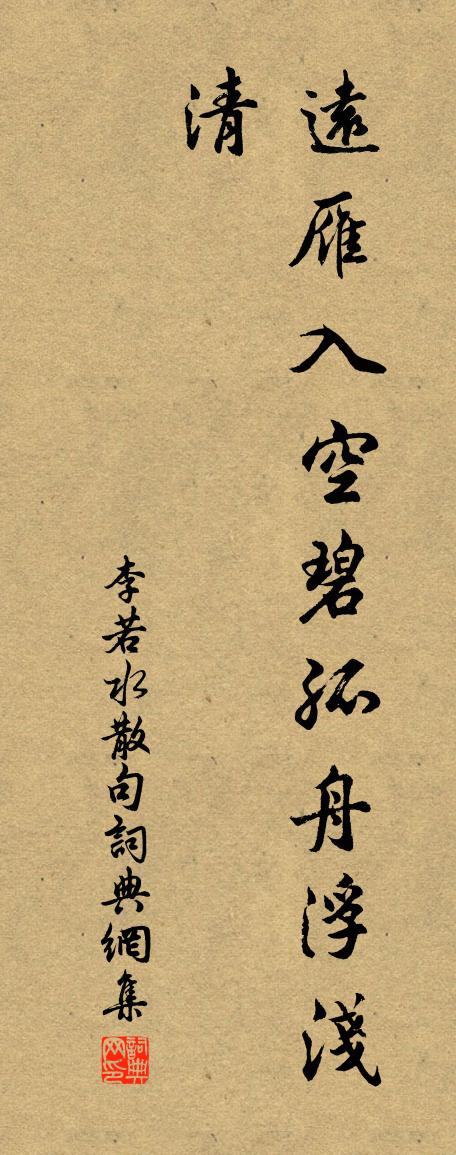 遠雁入空碧孤舟浮淺
清
李若水散句詞典網集
詞典
网印